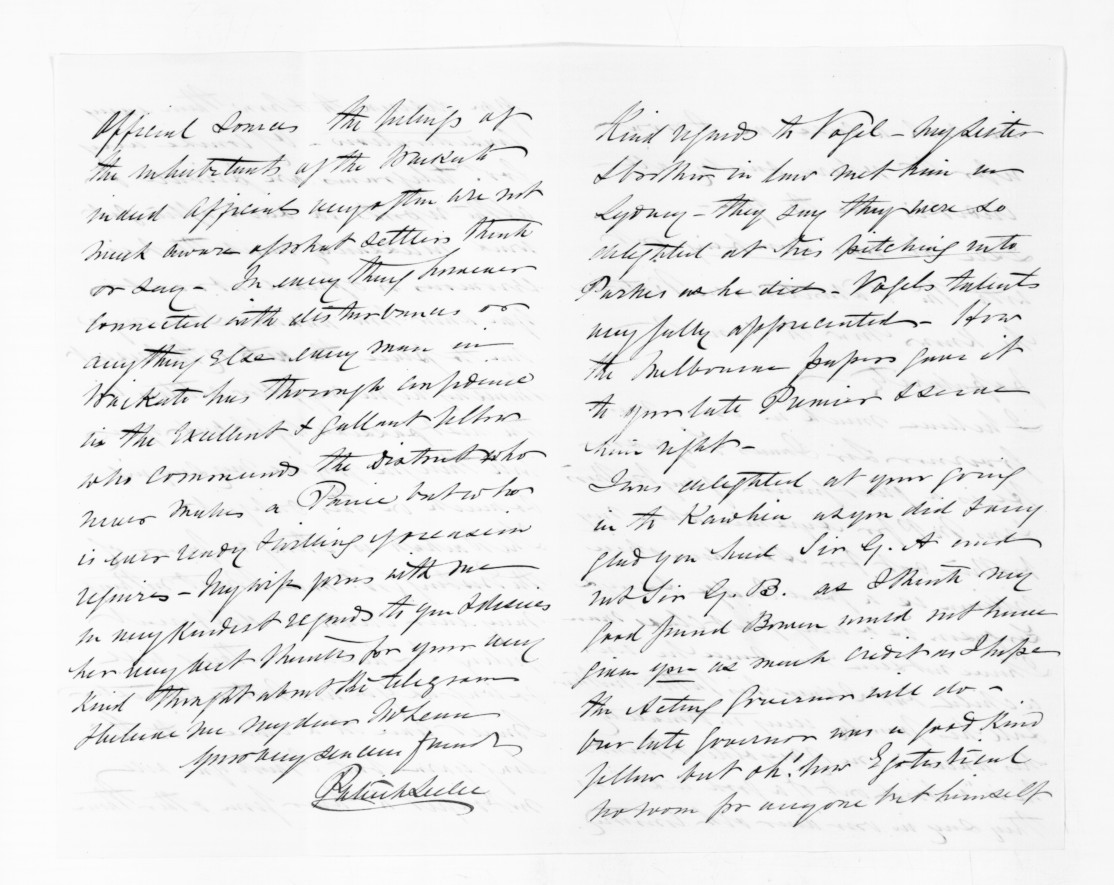 Official Sources the feelings of
the inhabitants of the Waikato
indeed officials very often are not
much aware of what settlers think
or say - In every thing however
connected with disturbances or
anything else every man in
Waikato has thorough confidence
in the Excellent & gallant fellow
who commands the District who
never makes a Panic but who
is ever ready & willing if occasion
requires - My wife joins with me
in very kindest regards to you & desires
her very best thanks for your very
kind thought about the telegram
& believe me my dear McLean
your very sincere friend
Patrick Leslie
Kind regards to Vogel - my sister
& brother in law met him in
Sydney - they say they were so
delighted at his pitching into
Parkes as he did - Vogels talents
very fully appreciated - How
the Melbourne papers gave it
to your late Premier & serve
him right -
I was delighted at your going
in to Kawhia as you did & very
glad you had Sir G. A. and
not Sir G. B. as I think my
good friend Bowen would not have
given you as much credit as I hope
the Acting Governor will do -
Our late Governor was a good kind
fellow but oh! how Egotistical
no room for anyone but himself